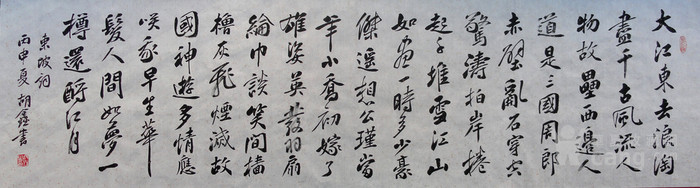 大江東去浪淘
盡千古風流人
物故壘西邊人
道是三國周郎
赤壁亂石穿空
驚濤拍岸捲
起千堆雪江山
如畫一時多少豪
傑遥想公瑾當
年小喬初嫁了
雄姿英發羽扇
綸巾談笑間檣
櫓灰飛煙滅故
國神遊多情應
咲我早生華
髮人間如夢一
樽還酹江月
東坡詞
丙申夏 胡鑫書